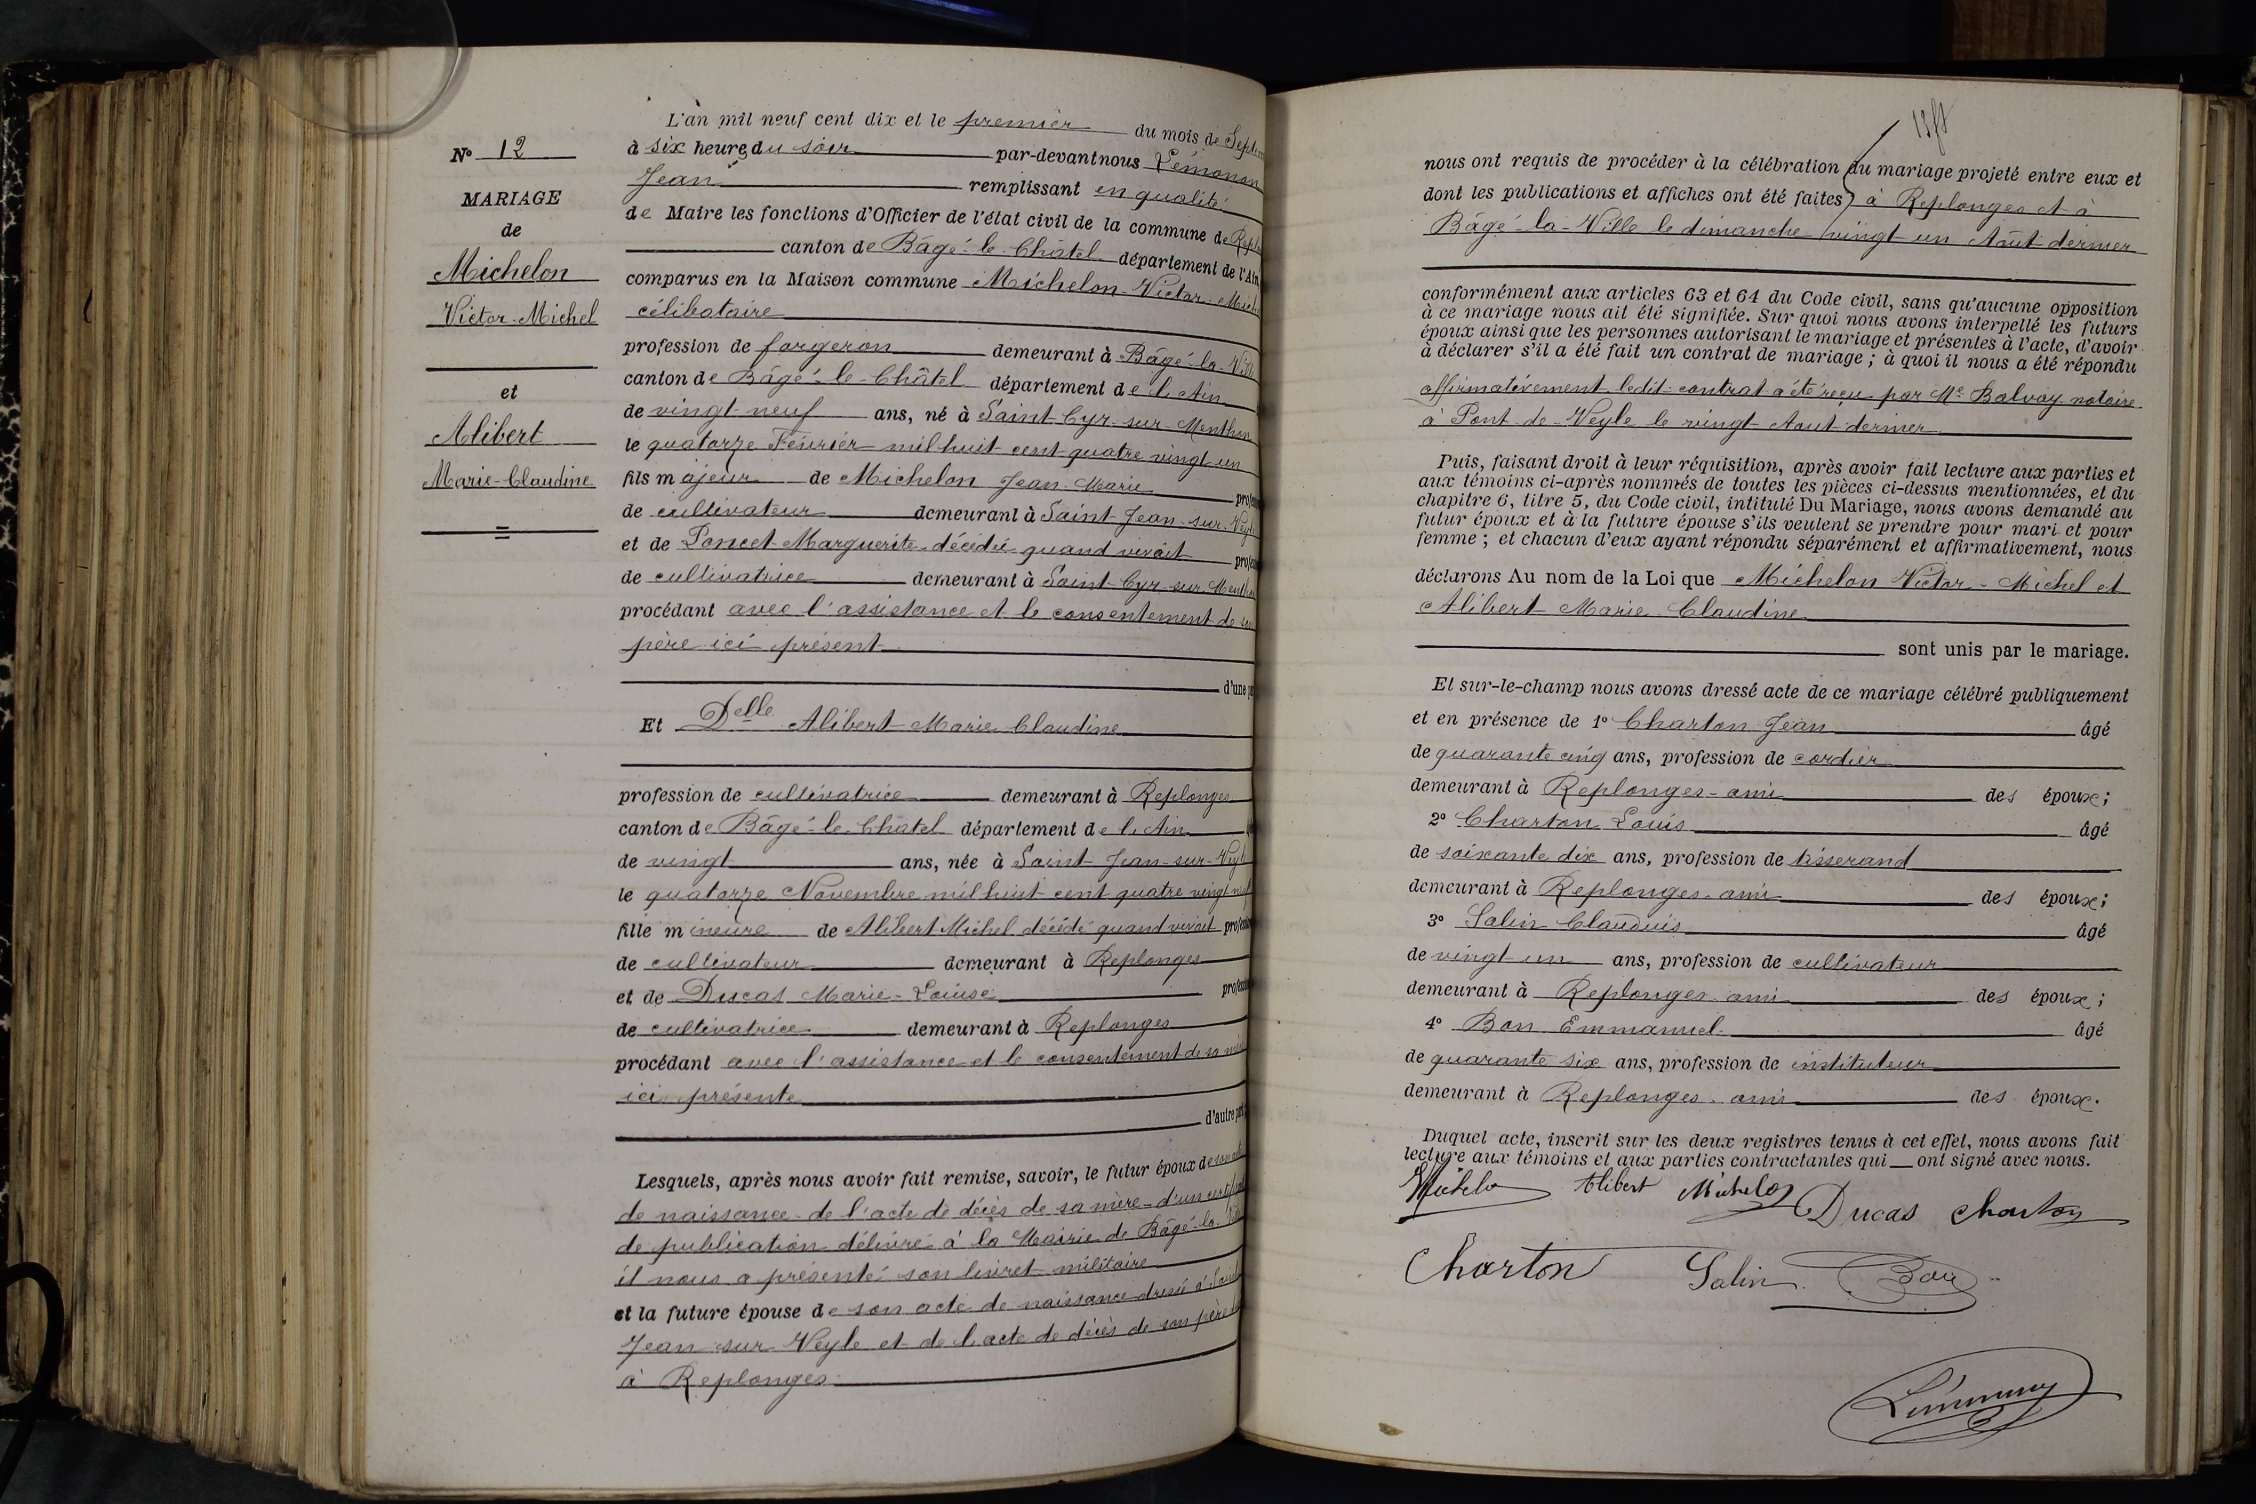 N° 12
MARIAGE
de
Michelon
Victor-Michel
et
Alibert
Marie-Claudine
L'an mil neuf cent dix et le premier du mois de Septem
à six heures du soir par-devant nous Lémonon
Jean remplissant en qualité
de Maire les fonctions d'Officier de l'état civil de la commune de Repl
canton de Bâgé-le-Châtel département de l'Ain
comparus en la Maison commune Michelon Victor-Mich
célibataire
profession de forgeron demeurant à Bâgé-la-Vill
canton de Bâgé-le-Châtel département de l'Ain
de vingt neuf ans, né à Saint-Cyr-sur-Menthon
le quatorze Février mil huit cent quatre vingt un
fils majeur de Michelon Jean-Marie prof
de cultivateur demeurant à Saint-Jean-sur-Veyl
et de Poncet Marguerite décédée quand vivait prof
de cultivatrice demeurant à Saint-Cyr-sur-Menth
procédant avec l'assistance et le consentement de
père ici présent
d'une p
Et Delle Alibert Marie Claudine
profession de cultivatrice demeurant à Replonges
canton de Bâgé-le-Châtel département de l'Ain
de vingt ans, née à Saint-Jean-sur-Veyl
le quatorze Novembre mil huit cent quatre vingt neuf
fille mineure de Alibert Michel décédé quand vivait profession
de cultivateur demeurant à Replonges
et de Ducas Marie-Louise profess
de cultivatrice demeurant à Replonges
procédant avec l'assistance et le consentement de sa mère
ici présente
d'autre part
Lesquels, après nous avoir fait remise, savoir, le futur époux de son acte
de naissance - de l'acte de décès de sa mère - d'un certificat
de publication délivré à la Mairie de Bâgé-la-Ville
il nous a présenté son livret militaire
et la future épouse de son acte de naissance dressé à Saint
Jean sur Veyle et de l'acte de décès de son père
à Replonges
nous ont requis de procéder à la célébration du mariage projeté entre eux et
dont les publications et affiches ont été faites à Replonges et à
Bâgé-la-Ville le dimanche vingt un Août dernier
conformément aux articles 63 et 64 du Code civil, sans qu'aucune opposition
à ce mariage nous ait été signifiée. Sur quoi nous avons interpellé les futurs
époux ainsi que les personnes autorisant le mariage et présentes à l'acte, d'avoir
à déclarer s'il a été fait un contrat de mariage ; à quoi il nous a été répondu
affirmativement ledit contrat a été reçu par Me Balvay notaire
à Pont-de-Veyle le vingt Aout dernier
Puis, faisant droit à leur réquisition, après avoir fait lecture aux parties et
aux témoins ci-après nommés de toutes les pièces ci-dessus mentionnées, et du
chapitre 6, titre 5, du Code civil, intitulé Du Mariage, nous avons demandé au
futur époux et à la future épouse s'ils veulent se prendre pour mari et pour
femme ; et chacun d'eux ayant répondu séparément et affirmativement, nous
déclarons Au nom de la Loi que Michelon Victor-Michel et
Alibert Marie-Claudine
sont unis par le mariage.
Et sur-le-champ nous avons dressé acte de ce mariage célébré publiquement
et en présence de 1° Charton Jean âgé
de quarante cinq ans, profession de cordier
demeurant à Replonges - ami des époux ;
2° Charton Louis âgé
de soixante dix ans, profession de tisserand
demeurant à Replonges - ami des époux ;
3° Salin Claudius âgé
de vingt un ans, profession de cultivateur
demeurant à Replonges - ami des époux ;
4° Bon Emmanuel âgé
de quarante six ans, profession de instituteur
demeurant à Replonges - ami des époux.
Duquel acte, inscrit sur les deux registres tenus à cet effet, nous avons fait
lecture aux témoins et aux parties contractantes qui ont signé avec nous.
Michelon Alibert Michelon Ducas Charton
Charton Salin Bon